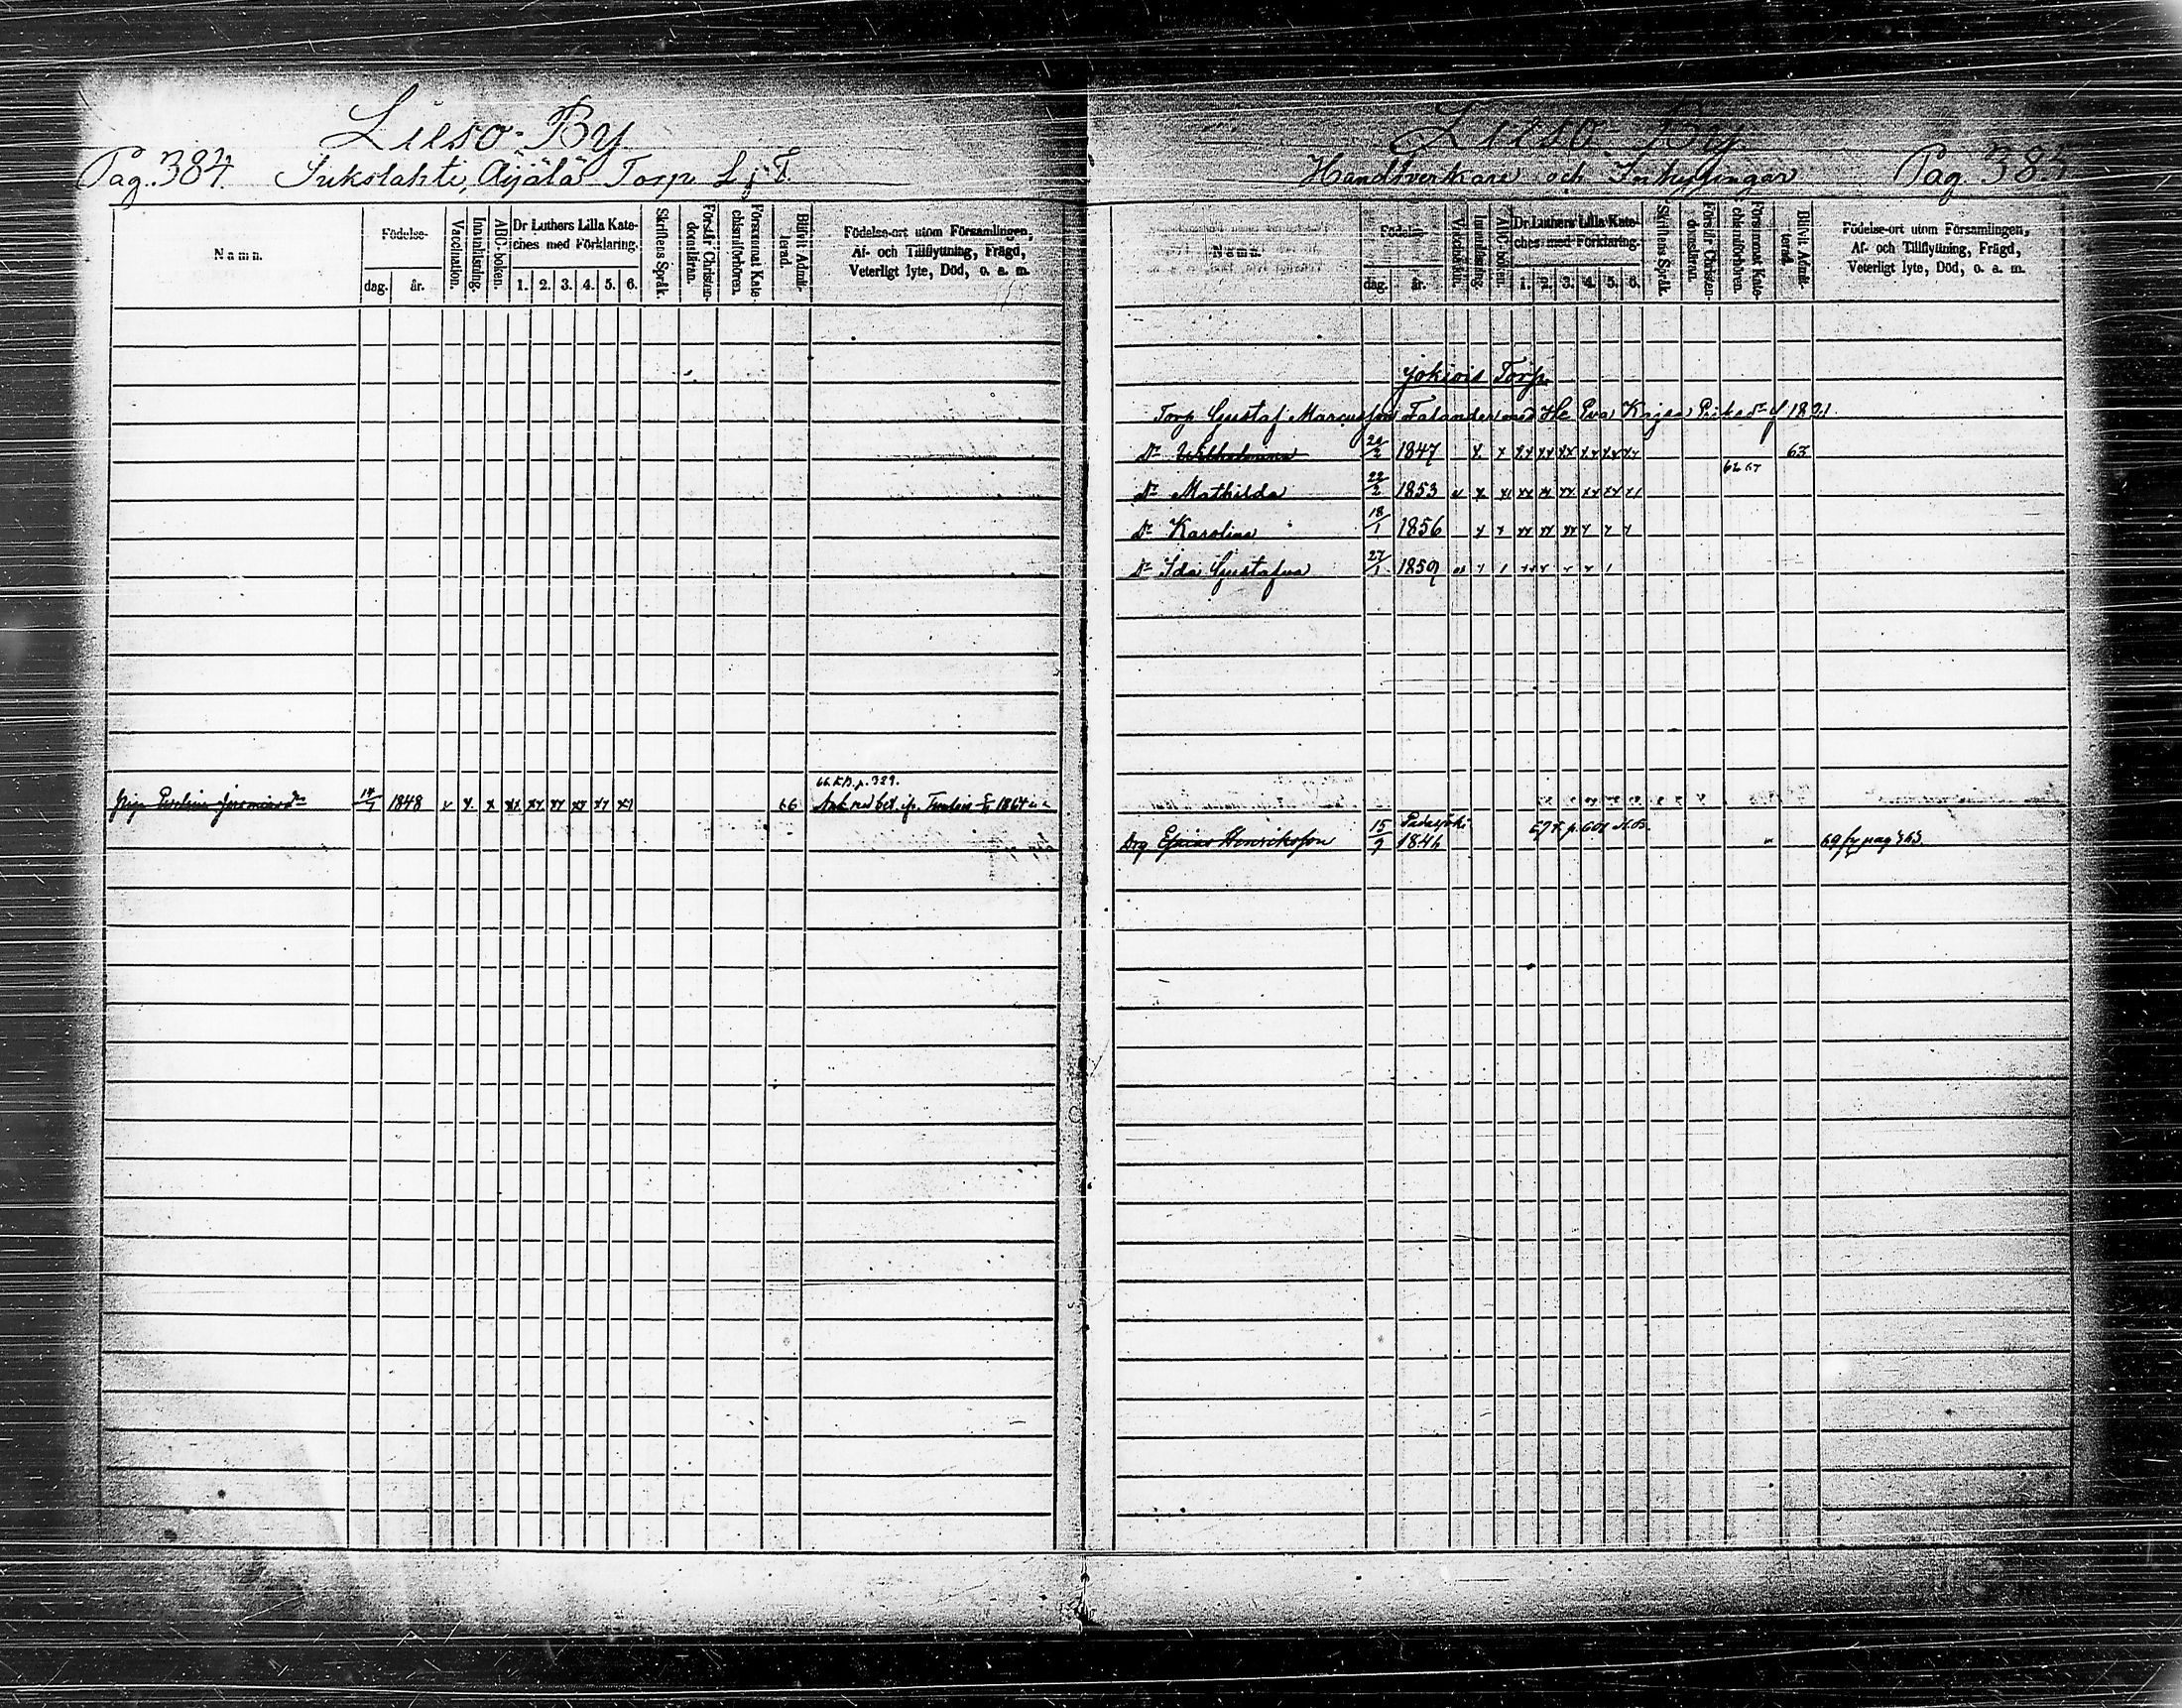 Lieso By
Pag. 384. Sukslahti, Äijälä Torp L j T.
Namn.
Födelse-
dag. år.
Vaccination.
Innanläsning.
ABC-boken.
Dr Luthers Lilla Kate-
ches med Förklaring.
1. 2. 3. 4. 5. 6.
Skriftens Språk.
Förstår Christen-
domsläran.
Försummat Kate-
chismiförhören.
Blifvit Admit-
terad.
Födelse-ort utom Församlingen,
Af- och Tillflyttning, Frägd,
Veterligt lyte, Död, o. a. m.
66 KB. p. 329.
Eveline 14/7 1848 x x x xx xx xx xx xx xx 66
Lieso By
Handtverkare och Inhysingar Pag. 385
Namn.
Födelse-
dag. år.
Vaccination.
Innanläsning.
ABC-boken.
Dr Luthers Lilla Kate-
ches med Förklaring.
1. 2. 3. 4. 5. 6.
Skriftens Språk.
Förstår Christen-
domsläran.
Försummat Kate-
chismiförhören.
Blifvit Admit-
terad.
Födelse-ort utom Församlingen,
Af- och Tillflyttning, Frägd,
Veterligt lyte, Död, o. a. m.
Jokiois Torp
Torp Gustaf Marcusson Falander med H Eva Kajsa f 1821
Dr Wilhelmina 1847 x x xx xx xx xx xx xx 63
62 67
Dr Mathilda 22/2 1853 x x xx xx xx xx xx
Dr Karolina 18/1 1856 x x xx xx xx x x x
Dr Ida Gustafva 27/1 1859
Padasjoki
Drg Esaias Henriksson 15/9 1846 p. 601 69 pag 363.